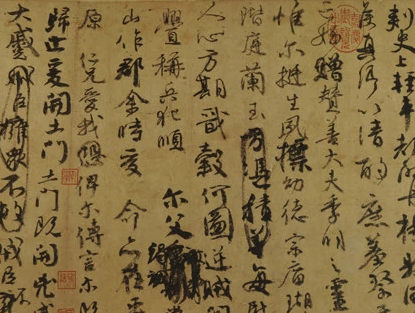 刺史上輕車都尉丹楊縣
侯真卿以清酌庶羞祭于
姪贈贊善大夫季明之靈
惟爾挺生夙標幼德宗廟瑚
階庭蘭玉方憑積善每慰
人心方期戩穀何圖逆賊間
釁稱兵犯順爾父竭誠常
山作郡余時受命亦在平
原仁兄愛我俾爾傳言爾既
歸止爰開土門土門既開凶威
大蹙賊臣擁衆不救賊臣